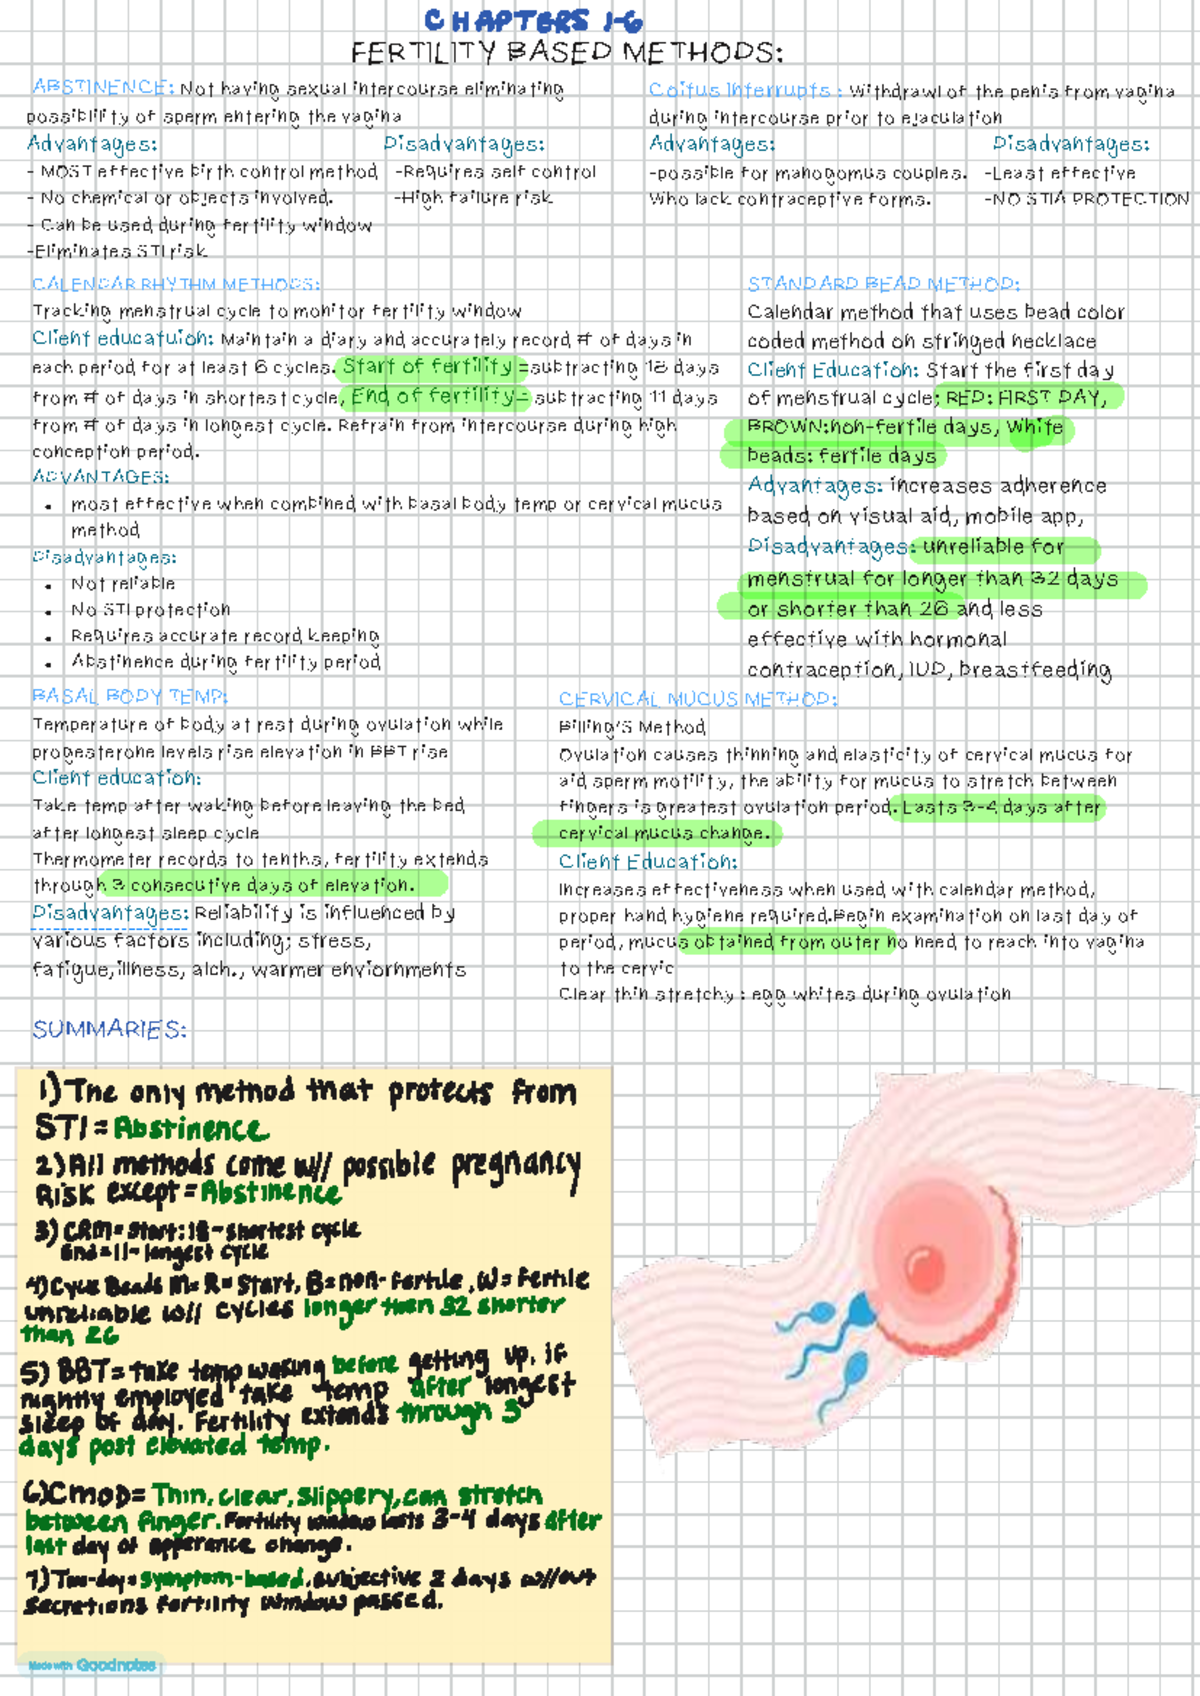 CHAPTERS 1-6
FERTILITY BASED METHODS:
ABSTINENCE: Not having sexual intercourse eliminating
possiblility of sperm entering the vagina
Advantages:
- MOST effective birth control method
- No chemical or objects involved.
- Can be used during fertility window
-Eliminates STI risk
Disadvantages:
-Requires self control
-High failure risk
Coitus Interrupts : Withdrawl of the penis from vagina
during intercourse prior to ejaculation
Advantages:
-possible for manogomus couples.
Who lack contraceptive forms.
Disadvantages:
-Least effective
-NO STIA PROTECTION
CALENDAR RHYTHM METHODS:
Tracking menstrual cycle to monitor fertility window
Client educatuion: Maintain a diary and accurately record # of days in
each period for at least 6 cycles. Start of fertility =subtracting 18 days
from # of days in shortest cycle, End of fertility= subtracting 11 days
from # of days in longest cycle. Refrain from intercourse during high
conception period.
ADVANTAGES:
• most effective when combined with basal body temp or cervical mucus
method
Disadvantages:
• Not reliable
• No STI protection
• Requires accurate record keeping
• Abstinence during fertility period
STANDARD BEAD METHOD:
Calendar method that uses bead color
coded method on stringed necklace
Client Education: Start the first day
of menstrual cycle; RED: FIRST DAY,
BROWN:non-fertile days, White
beads: fertile days
Advantages: increases adherence
based on visual aid, mobile app,
Disadvantages: unreliable for
menstrual for longer than 32 days
or shorter than 26 and less
effective with hormonal
contraception, IUD, breastfeeding
BASAL BODY TEMP:
Temperature of body at rest during ovulation while
progesterone levels rise elevation in BBT rise
Client education:
Take temp after waking before leaving the bed
after longest sleep cycle
Thermometer records to tenths, fertility extends
through 3 consecutive days of elevation.
Disadvantages: Reliability is influenced by
various factors including; stress,
fatigue,illness, alch., warmer enviornments
CERVICAL MUCUS METHOD:
Billing'S Method
Ovulation causes thinning and elasticity of cervical mucus for
aid sperm motility, the ability for mucus to stretch between
fingers is greatest ovulation period. Lasts 3-4 days after
cervical mucus change.
Client Education:
Increases effectiveness when used with calendar method,
proper hand hygiene required.Begin examination on last day of
period, mucus obtained from outer no need to reach into vagina
to the cervic
Clear thin stretchy : egg whites during ovulation
SUMMARIES:
1) The only method that protects from
STI = Abstinence
2) All methods come w// possible pregnancy
RISK except = Abstinence
3) CRM= Start: 18 - shortest cycle
End = 11 - longest cycle
4) Cycle Beads M= R= Start, B= non-fertile, W= Fertile
unreliable w// cycles longer then 32 shorter
than 26
5) BBT = take temp waking before getting up, if
nightly employed take temp after longest
sleep of day. Fertility extends through 3
days post elevated temp.
6) CMOD= Thin, clear, slippery, can stretch
between finger. Fertility window lasts 3-4 days after
last day of apperance change.
7) Two-day= symptom-based, subjective 2 days w//out
secretions fertility window passed.
Made with Goodnotes